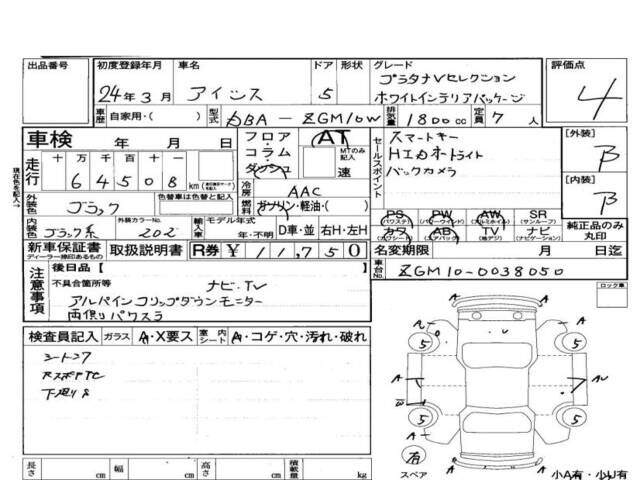 出品番号 初度登録年月 車名 ドア 形状 グレード 評価点
24年3月 アイシス 5 プラタナVセレクション
ホワイトインテリアパッケージ 4
車歴 自家用・( ) 型式 DBA-ZGM10W 排気量 1800cc 定員 7人
車検 年 月 日 フロア・コラム・ダッシュ AT MTのみ記入 速
セールスポイント スマートキー
HIDオートライト
バックカメラ
[外装] B
[内装] B
現在色を記入→
走行 十 万 千 百 十 一
64508 km
冷房 AAC
外装色 ブラック 色替車は色替と記入 燃料 ガソリン・軽油・( )
内装色 ブラック系 外装カラーNo. 202 輸入車 モデル年式 年・不明 D車・並 右H・左H
PS (パワステ) PW (パワーウインドウ) AW (アルミホイル) SR (サンルーフ)
カワ (カワシート) AB (エアバック) TV (地デジ) ナビ (ナビゲーション)
純正品のみ丸印
新車保証書 ディーラー捺印あるもの 取扱説明書 R券 ¥11,750
名変期限 年 月 日迄
注意事項 後日品【 】
不具合箇所等 ナビ・TV
アルパインフリップダウンモニター
両側リパワスラ
車台No. ZGM10-0038050
ロック車
検査員記入 ガラス A・X要ス 室内 シート A・コゲ・穴・汚れ・破れ
A U A
5 5
A A AU
W
5 5
A A
有
スペア A
長さ cm 幅 cm 高さ cm 積載量 kg
小A有・小U有